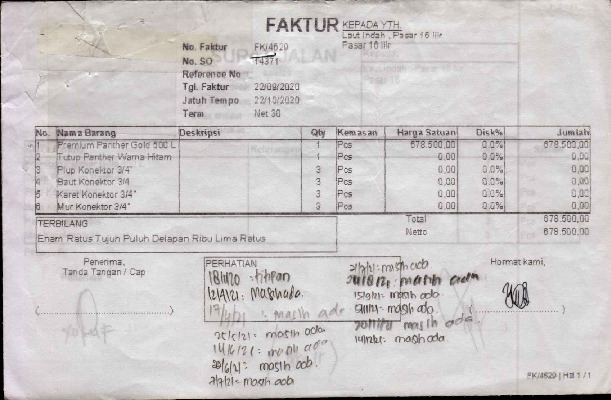 FAKTUR
KEPADA YTH.
Laut Indah , Pasar 16 Ilir
Pasar 16 Ilir
No. Faktur FK/4629
No. SO 14371
Reference No
Tgl. Faktur 22/09/2020
Jatuh Tempo 22/10/2020
Term Net 30
No. Nama Barang Deskripsi Qty Kemasan Harga Satuan Disk% Jumlah
1 Premium Panther Gold 500 L 1 Pcs 678.500,00 0.0% 678.500,00
2 Tutup Panther Warna Hitam 1 Pcs 0,00 0.0% 0,00
3 Plup Konektor 3/4" 3 Pcs 0,00 0.0% 0,00
4 Baut Konektor 3/4 3 Pcs 0,00 0.0% 0,00
5 Karet Konektor 3/4" 3 Pcs 0,00 0.0% 0,00
6 Mur Konektor 3/4" 3 Pcs 0,00 0.0% 0,00
TERBILANG
Enam Ratus Tujuh Puluh Delapan Ribu Lima Ratus
Total 678.500,00
Netto 678.500,00
Penerima,
Tanda Tangan / Cap
PERHATIAN
Hormat kami,
titipan
12/4/21: Masih ada
masih ada
25/5/21: masih ada
14/6/21: masih ada
28/6/21: masih ada
7/7/21: masih ada
21/7/21: masih ada
masih ada
masih ada
masih ada
masih ada
masih ada
FK/4629 | Hal 1 / 1